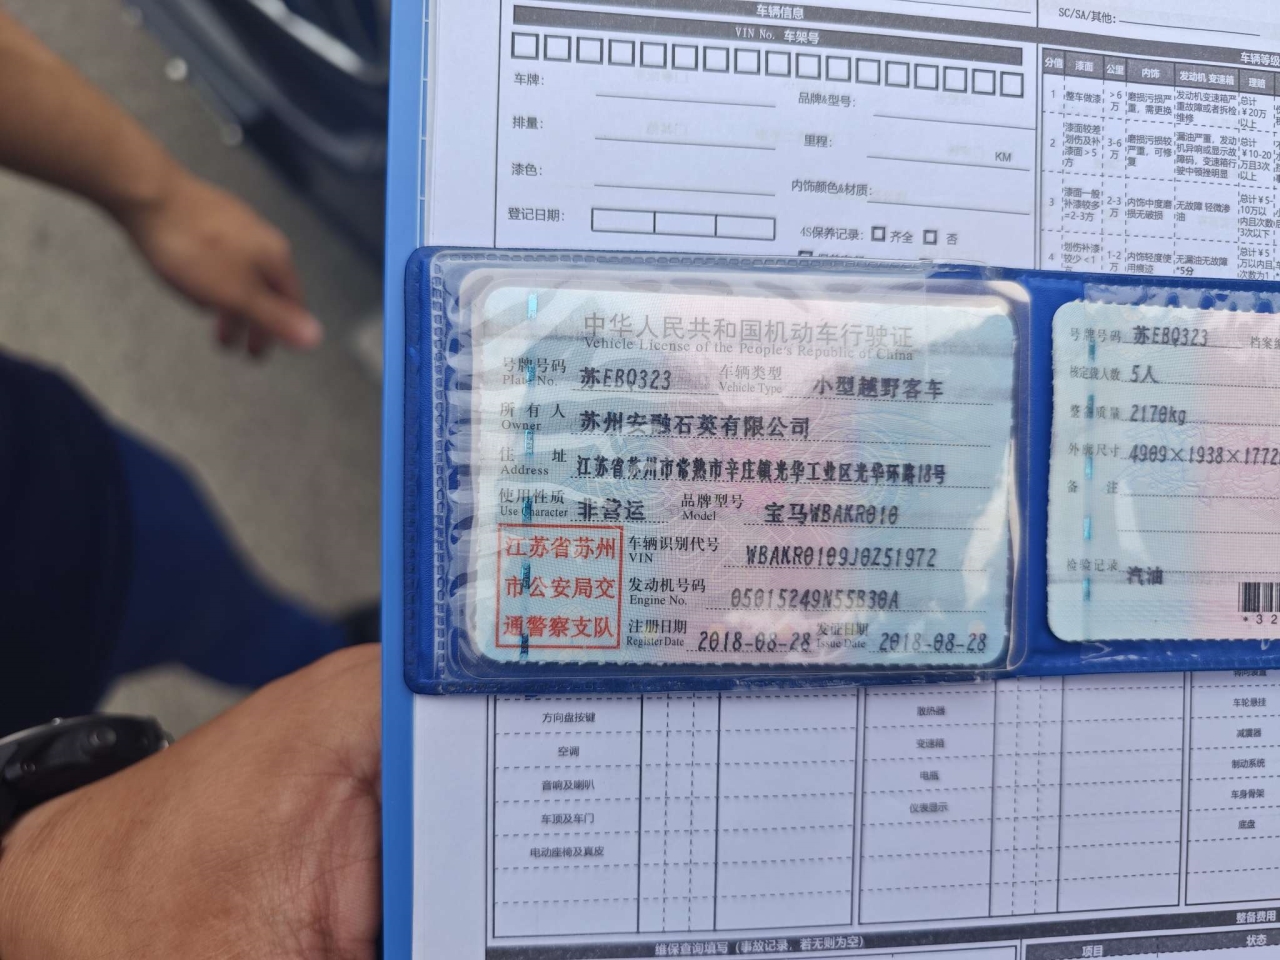 车辆信息
SC/SA/其他:
VIN No. 车架号
车牌:
品牌&型号:
排量:
里程:
KM
漆色:
内饰颜色&材质:
登记日期:
4S保养记录: 齐全 否
车辆等级
分值 漆面 公里 内饰 发动机 变速箱 理赔
1 整车做漆 >6万 磨损污损严重, 需更换 发动机变速箱严重故障或者拆检维修 总计¥20万以上
2 漆面较差 划伤及补漆面>5方 3-6万 磨损污损较严重, 可修复 漏油严重, 发动机异响或显示故障码, 变速箱行驶中顿挫明显 总计¥10-20万且3次以上
3 漆面一般 补漆较多=2-3方 2-3万 内饰中度磨损无破损 无故障 轻微渗油 总计¥5-10万以内且次数3次以下
4 划伤补漆较少<1方 1-2万 内饰轻度使用痕迹 无漏油无故障*5分 总计¥5万以内且次数为1
中华人民共和国机动车行驶证
Vehicle License of the People's Republic of China
号牌号码 苏EBQ323 车辆类型 小型越野客车
Plate No. Vehicle Type
所有人 苏州安融石英有限公司
Owner
住址 江苏省苏州市常熟市辛庄镇光华工业区光华环路18号
Address
使用性质 非营运 品牌型号 宝马WBAKR010
Use Character Model
江苏省苏州
市公安局交
通警察支队
车辆识别代号 WBAKR0109J0Z51972
VIN
发动机号码 05015249N55B30A
Engine No.
注册日期 2018-08-28 发证日期 2018-08-28
Register Date Issue Date
号牌号码 苏EBQ323 档案
核定载人数 5人
整备质量 2170kg
外廓尺寸 4909×1938×1772
备注
检验记录 汽油
*32
方向盘按键 散热器
空调 变速箱
音响及喇叭 电瓶
车顶及车门 仪表显示
电动座椅及真皮
车轮悬挂
减震器
制动系统
车身骨架
底盘
整备费用
维保查询填写 (事故记录, 若无则为空)
项目 状态